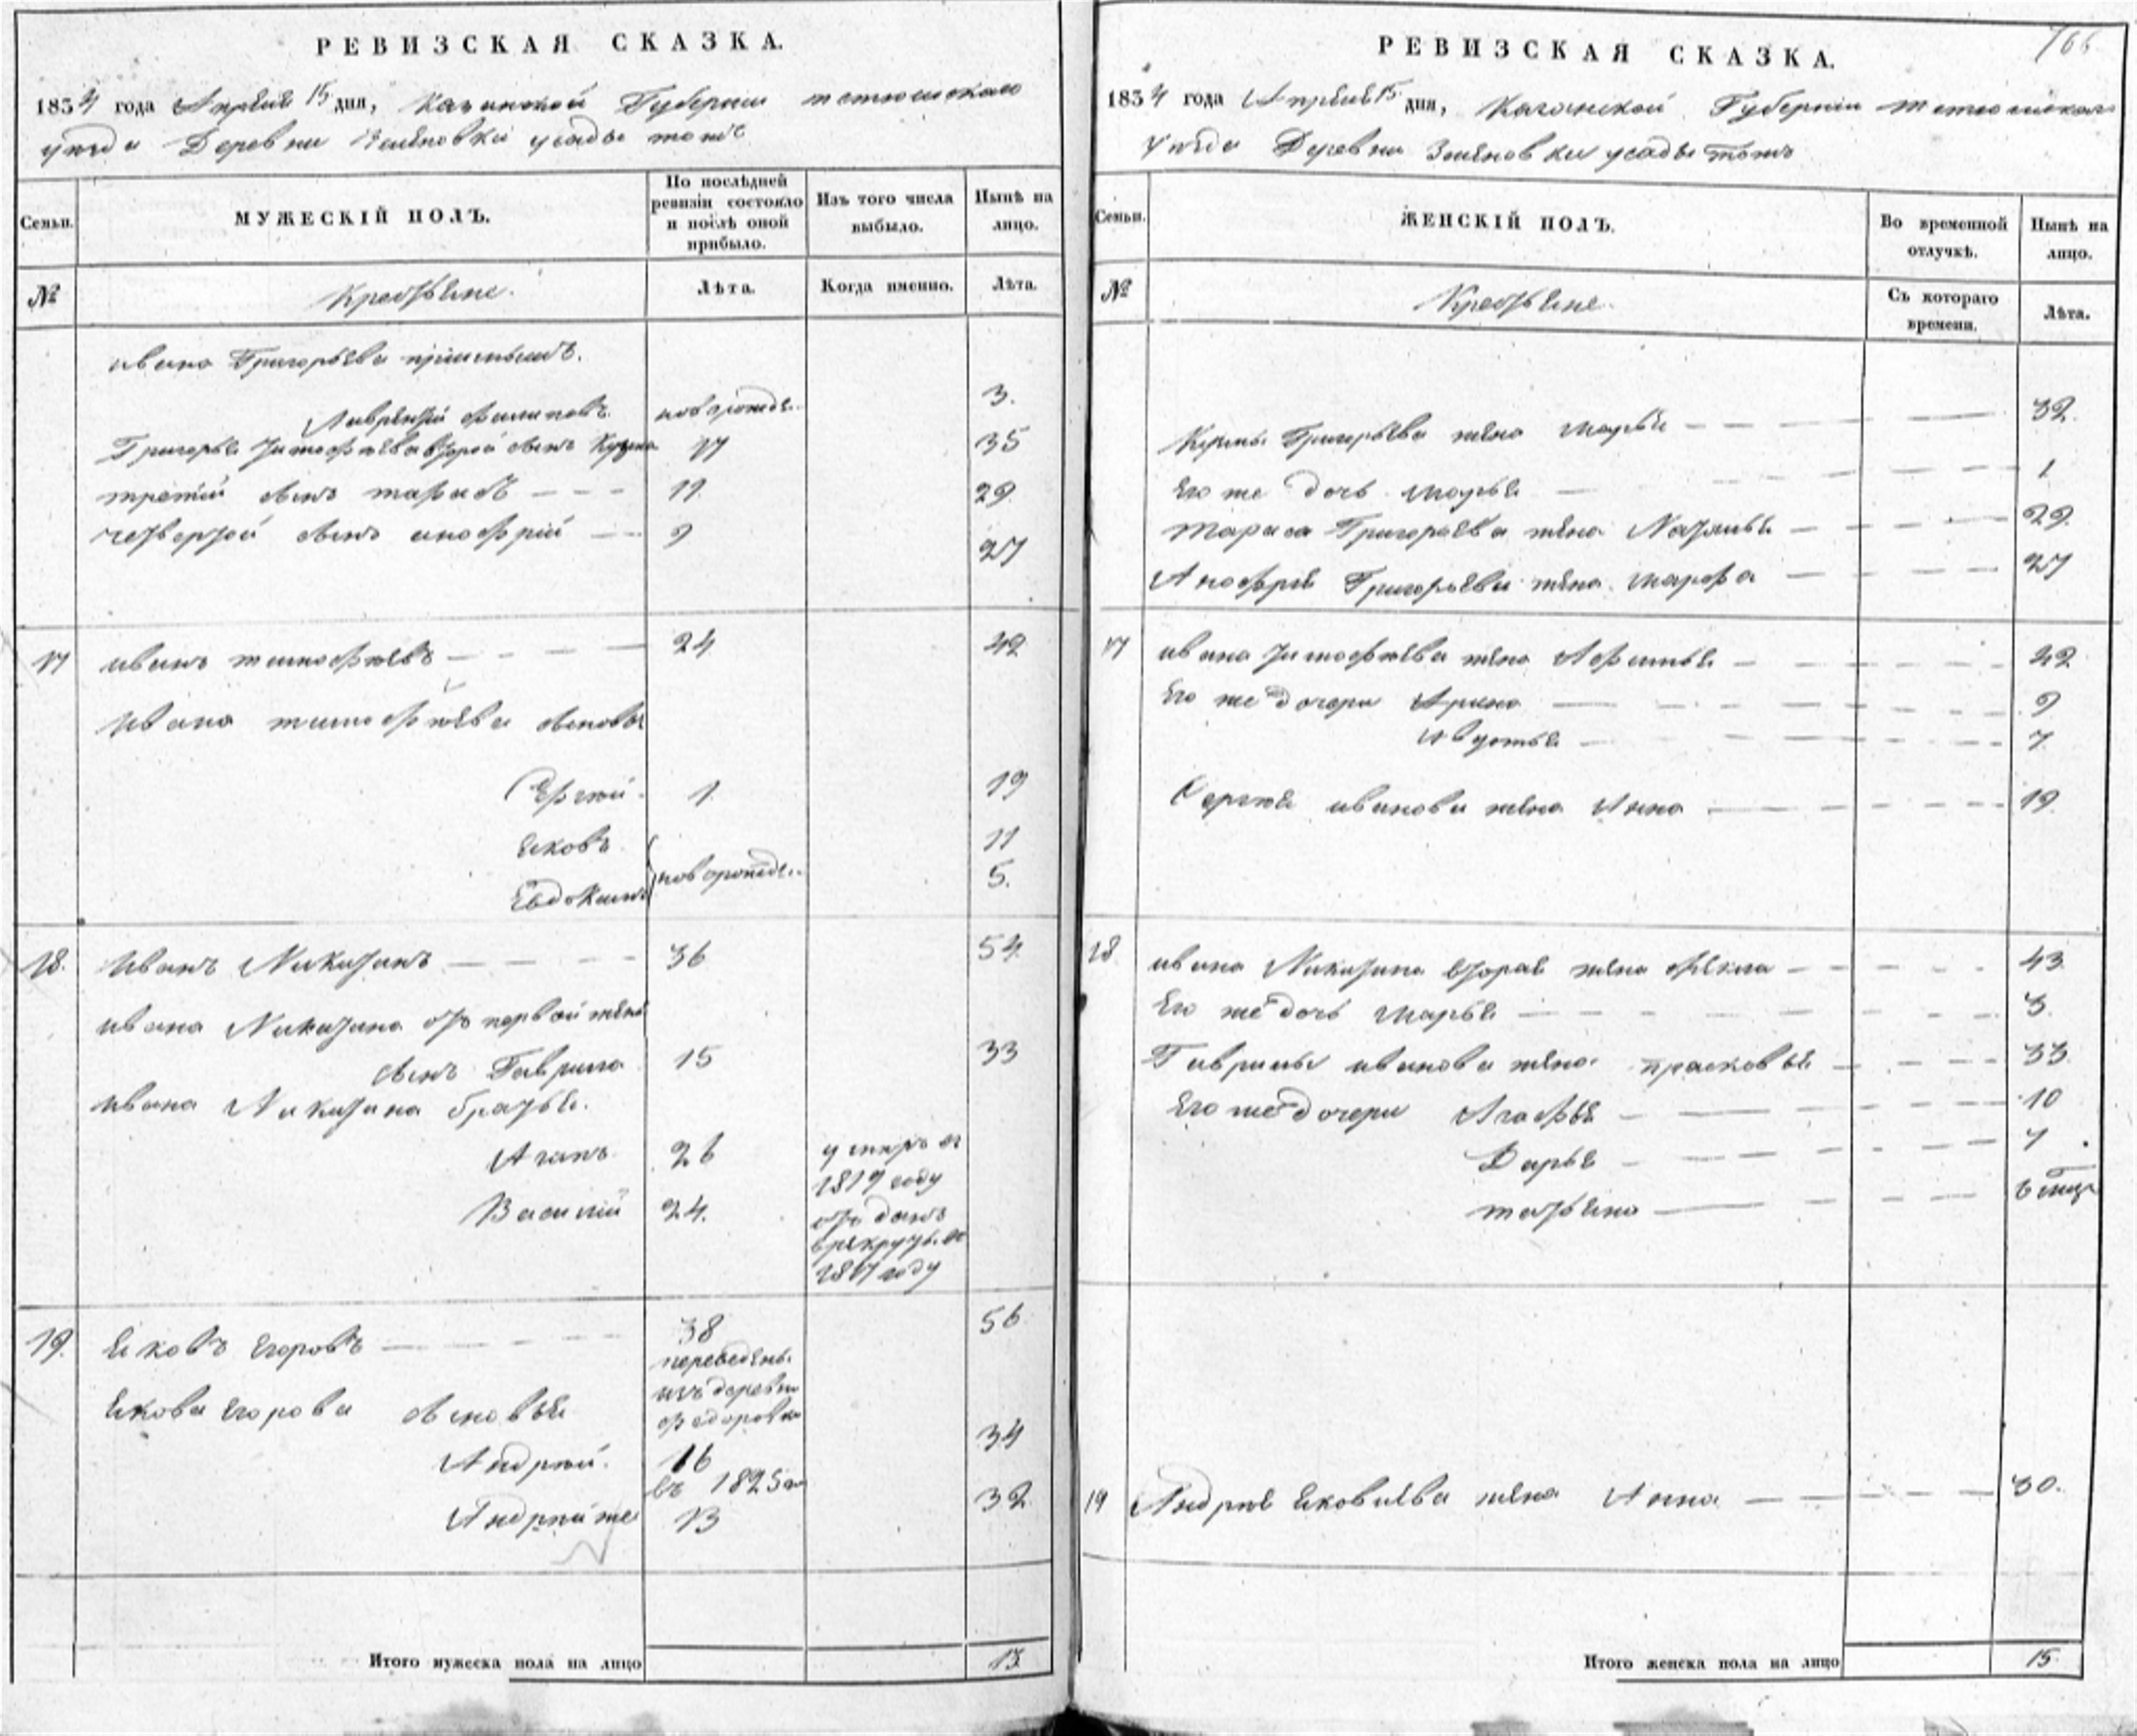 РЕВИЗСКАЯ СКАЗКА.
1834 года Апреля 15 дня, Казанской Губернии тетюшскаго
уезда Деревни усадьбы тожъ
Семьи.
МУЖЕСКІЙ ПОЛЪ.
По послѣдней
ревизіи состояло
и послѣ оной
прибыло.
Изъ того числа
выбыло.
Нынѣ на
лицо.
№
Крестьяне.
Лѣта.
Когда именно.
Лѣта.
ивана Григорьева
новорожде. 3.
Григорья Тимофѣева второй сынъ Кузма 17 35
третій сынъ тарасъ 11 29
четвертой сынъ анофрій 9 27
17 иванъ тимофѣевъ 24 42
Ивана тимофѣева сыновья
Сергѣй 1. 19
яковъ 11
новорожде.
Евдокимъ 5.
18. Иванъ Никитинъ 36 54
ивана Никитина отъ первой жены
сынъ Гаврила 15 33
ивана Никитина братья.
Агапъ 26 умеръ въ
1819 году
Василій 24. отданъ
въ рекруты въ
1817 году
19. яковъ егоровъ 38 56
переведены
изъ деревни
федоровки
якова егорова сыновья
Андрей. 16 34
въ 1825 го
Андрей же 13 32
Итого мужеска пола на лицо 13
166
РЕВИЗСКАЯ СКАЗКА.
1834 года Апреля 15 дня, Казанской Губерніи тетюшскаго
уезда Деревни усадьбы тожъ
Семьи.
ЖЕНСКІЙ ПОЛЪ.
Во временной
отлучкѣ.
Нынѣ на
лицо.
№
Крестьяне.
Съ котораго
времени.
Лѣта.
Кузмы Григорьева жена марья 32
Его же дочь марья 1
тараса Григорьева жена Наталья 29
Анофрія Григорьева жена марфа 27
17 ивана Тимофѣева жена Афимья 42
Его же дочери Арина 9
Авдотья 7
Сергѣя иванова жена Анна 19
18 ивана Никитина вторая жена фекла 43
Его же дочь марья 3
Гаврилы иванова жена прасковья 33
Его же дочери Агафья 10
Дарья 7
татьяна 6 мѣц
19 Андрѣя яковлева жена Анна 30.
Итого женска пола на лицо 15